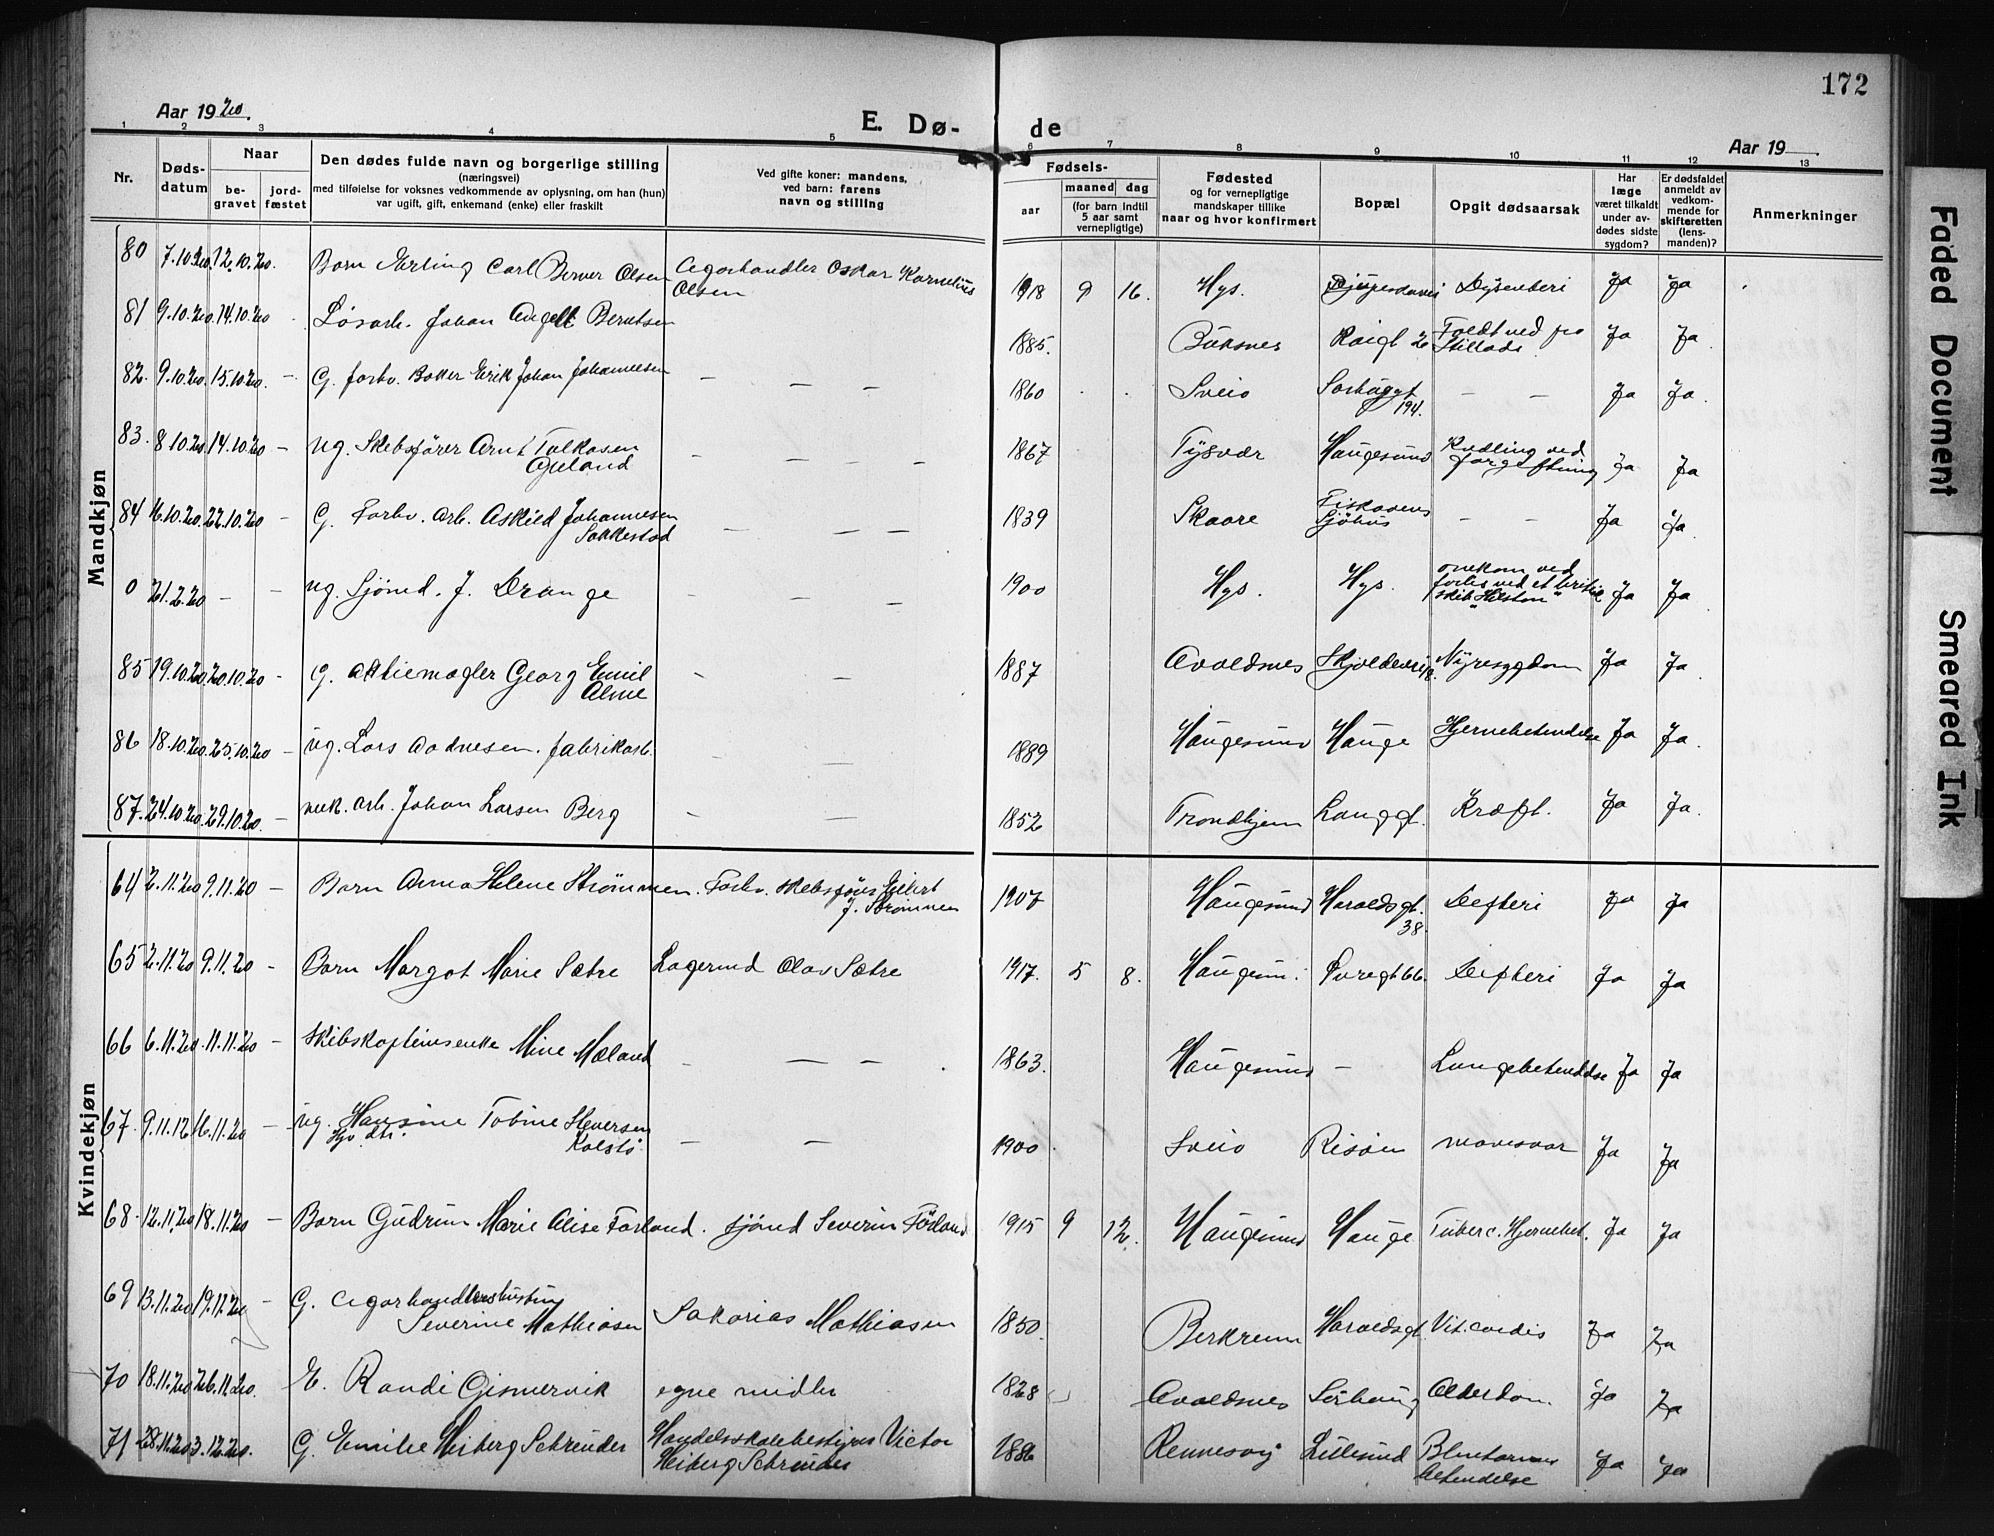 172
Aar 1920.
E. Dø-
de
Aar 19
1 2 3 4 5 6 7 8 9 10 11 12 13
Nr.
Døds-
datum
Naar
be-
gravet
jord-
fæstet
Den dødes fulde navn og borgerlige stilling
(næringsvei)
med tilføielse for voksnes vedkommende av oplysning, om han (hun)
var ugift, gift, enkemand (enke) eller fraskilt
Ved gifte koner: mandens,
ved barn: farens
navn og stilling
Fødsels-
aar
maaned
dag
(for barn indtil
5 aar samt
vernepligtige)
Fødested
og for vernepligtige
mandskaper tillike
naar og hvor konfirmert
Bopæl
Opgit dødsaarsak
Har
læge
været tilkaldt
under av-
dødes sidste
sygdom?
Er dødsfaldet
anmeldt av
vedkom-
mende for
skifteretten
(lens-
manden)?
Anmerkninger
Mandkjøn
80 7.10.20. 12.10.20. Barn Erling Carl Berner Olsen Cigarhandler Oskar Kornelius
Olsen 1918 9 16. Hgs. Dysenteri Ja Ja
81 9.10.20. 14.10.20 Løsarb. Johan Angell Berntsen 1885. Buksnes Ja Ja
82. 9.10.20. 15.10.20. — G. forhv. Baker Erik Johan Johannesen — — — 1860 Sveio Sørhauggt
194. — — Ja Ja
83. 8.10.20 14.10.20 — ug. Skibsfører Arnt Tolkasen
— — — 1867 Tysvær Haugesund Ja Ja
84 16.10.20. 22.10.20 — G. Forhv. arb. Askild Johannesen
Sakkestad — — — 1839 Skaare Fiskaaens
Sjøhus — — Ja Ja
0 21.2.20 — — ug. Sjømd. J. Drange — — — 1900 Hgs. Hgs. omkom ved
forlis ved et britisk
skib Ja Ja
85 19.10.20. 20.10.20 - G. aktiemægler Georg Emil
Alme — — 1887 Avaldsnes Nyresygdom Ja Ja
86 18.10.20. 25.10.20 — ug. Lars Aadnesen. fabrikarb. — — 1889 Haugesund Hauge Hjernebetendelse Ja Ja
87. 24.10.20. 29.10.20. — enk. arb. Johan Larsen Berg — — 1852 Trondhjem Langgt. Kræft. Ja Ja
Kvindekjøn
64 2.11.20 9.11.20 — Barn Anna Helene Strømmen. Forhv. skibsfører Eilert
J. Strømmen 1907 Haugesund Haraldsgt.
38. Difteri Ja Ja
65 2.11.20 9.11.20 - Barn Margot Marie Sætre Lagermd Olav Sætre 1917. 5 8. Haugesun. Difteri Ja Ja
66 6.11.20. 11.11.20 — Skibskapteinsenke Mine Mæland — — — 1863. Haugesund — Lungebetendelse Ja Ja
67. 9.11.12 16.11.20 — ug. Hansine Tobine Steversen
Kolstø — — 1900 Sveio Risøen mavesaar Ja Ja
68. 12.11.20 18.11.20 — Barn Gudrun Marie Alise Førland. sjømd Severin Førland 1915 9 12. Haugesund Hauge Tuberc. Hjernebet. Ja Ja
69 13.11.20 19.11.20 — G. Cigarhandlershustru
Severine Mathiasen Sakarias Mathiasen 1850. Berkreim Haraldsgt. Vit. cordis Ja Ja
70 18.11.20 26.11.20. E. Randi Gismervik egne midler 1828 Avaldsnes Sørhaug Alderdom. Ja Ja
71 28.11.20 3.12.20. G. Emilie Heiberg Schreuder Handelsskolebestyrer Victor
Heiberg Schreuder 1886 Rennesøy Lillesund Blindtarms
betendelse Ja Ja
Faded Document
Smeared Ink